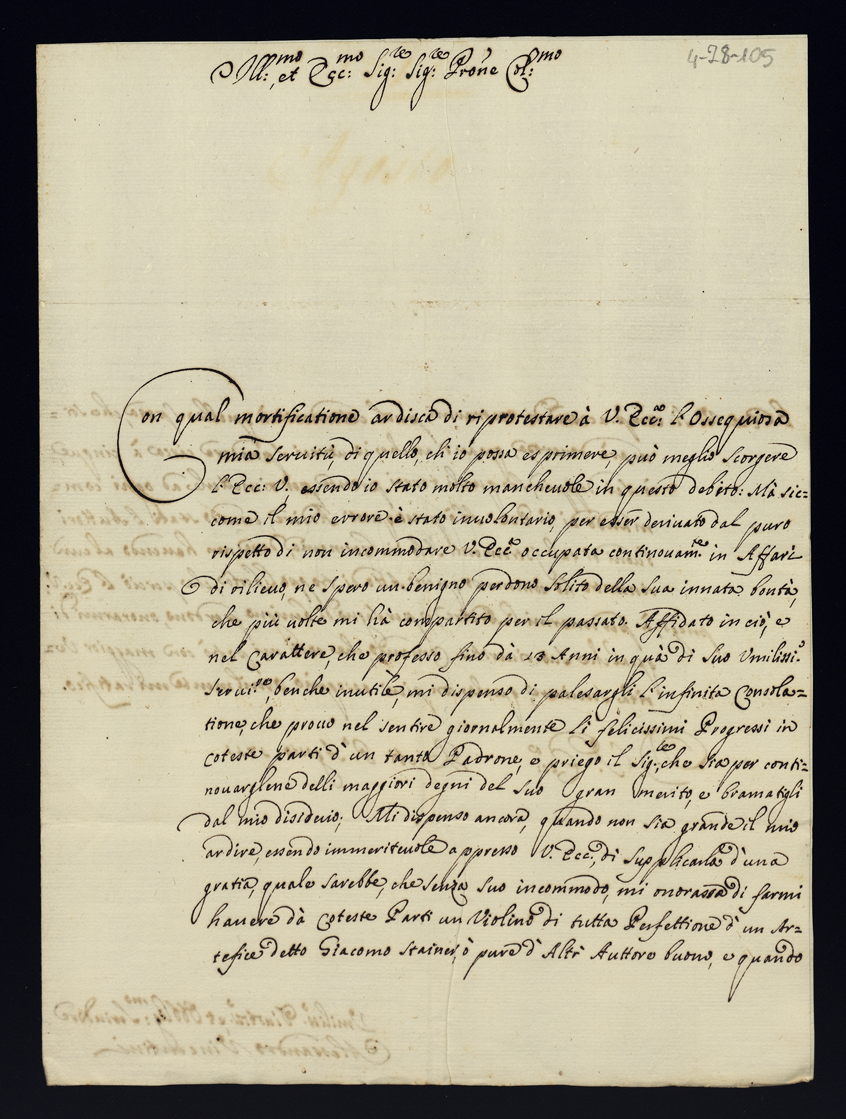 Ill:mo et Ecc:mo Sig:re Sig:re Prone Col:mo
4-28-105
Con qual mortificatione ardisca di riprotestare à V. Ecc:a l'Ossequiosa
mia servitù, di quello, ch'io possa esprimere, può meglio scorgere
l'Ecc: V. essendo io stato molto mancheuole in questo debito: Mà sic=
come il mio errore è stato inuolontario, per esser deriuato dal puro
rispetto di non incommodare V. Ecc:a occupata continouam:te in Affari
di rilieuo, ne spero un benigno perdono solito della sua innata bontà,
che più uolte mi hà compartito per il passato. Affidato in ciò, e
nel Carattere, che professo sino dà 13 Anni in quà di suo Vmilis:o
Serui:re, benche inutile, mi dispenso di palesargli l'infinita Consola=
tione, che prouo nel sentire giornalmente li felicissimi Progressi in
coteste parti d'un tanto Padrone, e priego il Sig:re che sia per conti=
nouarglene delli maggiori degni del suo gran merito, e bramatigli
dal mio disiderio; Mi dispenso ancora, quando non sia grande il mio
ardire, essendo immeriteuole appresso V. Ecc:a, di supplicarla d'una
gratia, quale sarebbe, che senza suo incommodo, mi onorassa di farmi
hauere dà coteste Parti un Violino di tutta Perfettione d'un Ar=
tefice detto Giacomo Stainer, ò pure d'Altr' Auttore buono, e quando